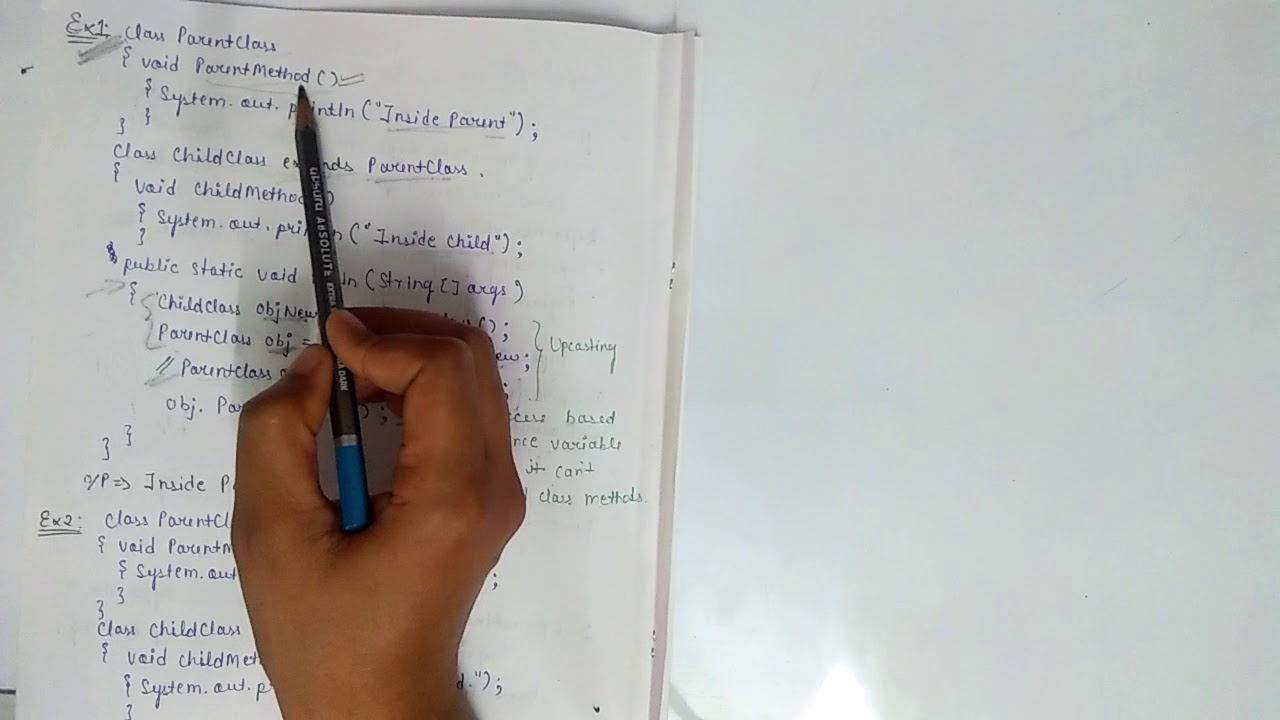 Ex1: Class ParentClass
{ void ParentMethod ()
{ System. out. println ("Inside Parent");
}
}
Class ChildClass extends ParentClass.
{
void ChildMethod ()
{ System. out. println ("Inside Child");
}
public static void main (String [] args)
{ ChildClass objNew ();
ParentClass obj = ew;
// ParentClass ;
obj. Par );
}
}
Upcasting
based
variable
it can't
class methods.
O/P => Inside P
Ex2: Class ParentCl
{ void ParentM
{ System. out ;
}
}
Class ChildClass
{ void ChildMet
{ System. out. p d.");
}
ABSOLUTE EXTRA DARK